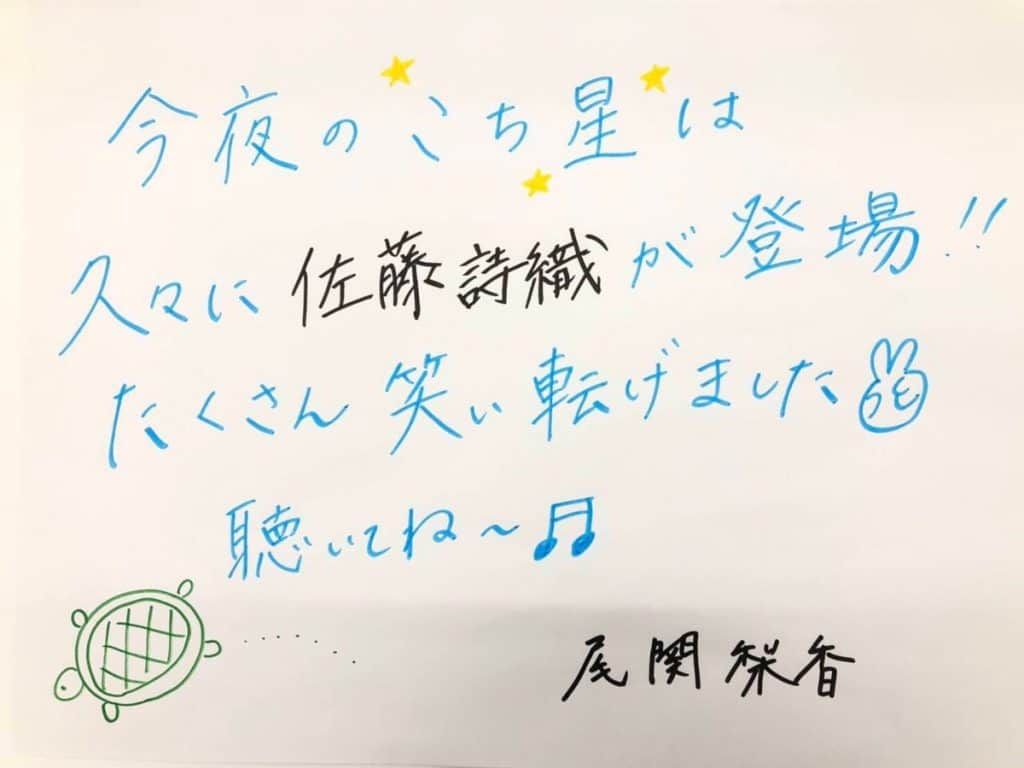 今夜のこち星は
久々に佐藤詩織が登場!!
たくさん笑い転げました
聴いてね〜♫
尾関梨香